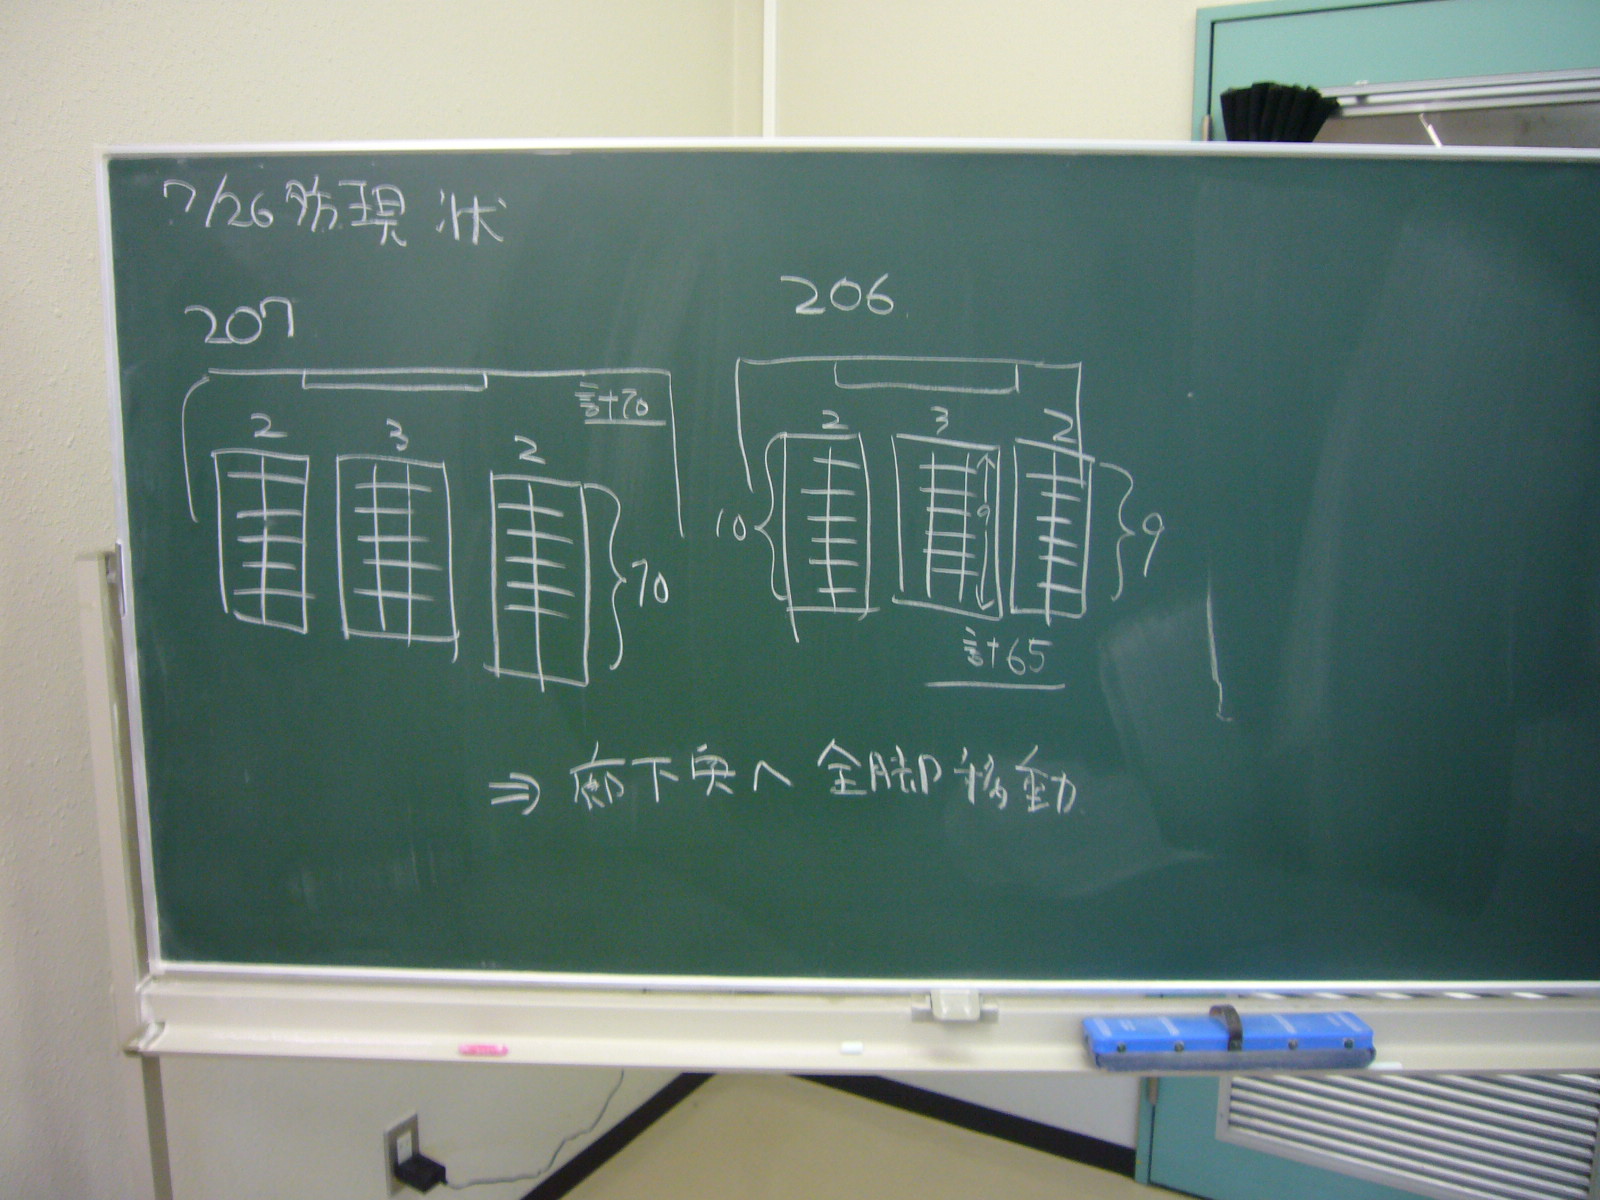 7/26 防 現状
207
206
計70
2 3 2
2 3 2
10
9
9
計65
⇒ 廊下奥へ 全脚移動